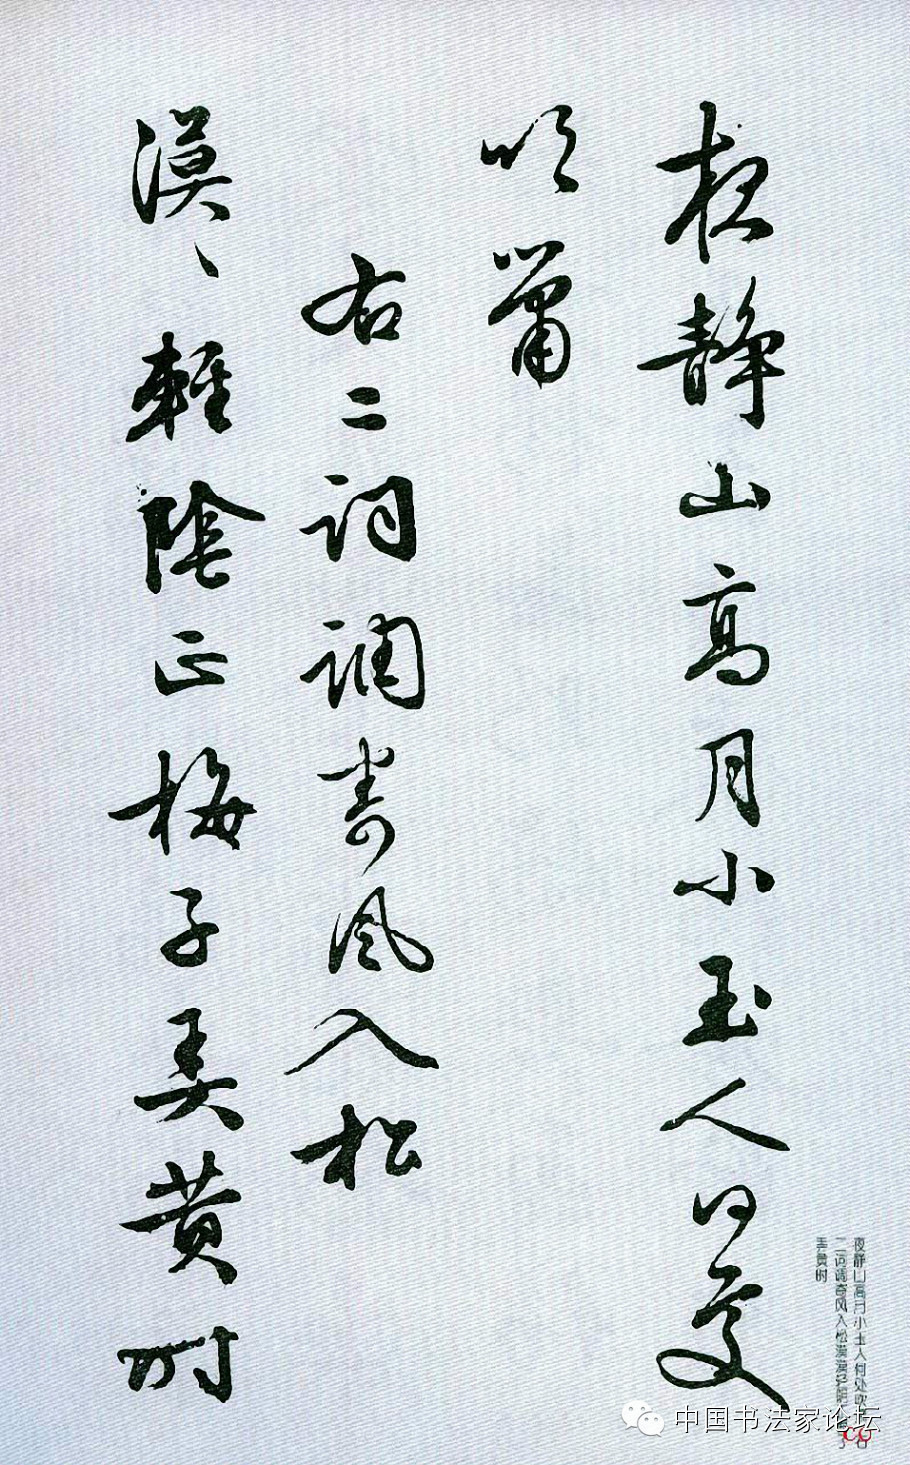 夜静山高月小玉人何处
吹箫
右二词调寄风入松
漠漠轻阴正梅子弄黄时
夜静山高月小玉人何处吹
二词调寄风入松漠漠轻阴
弄黄时
中国书法家论坛